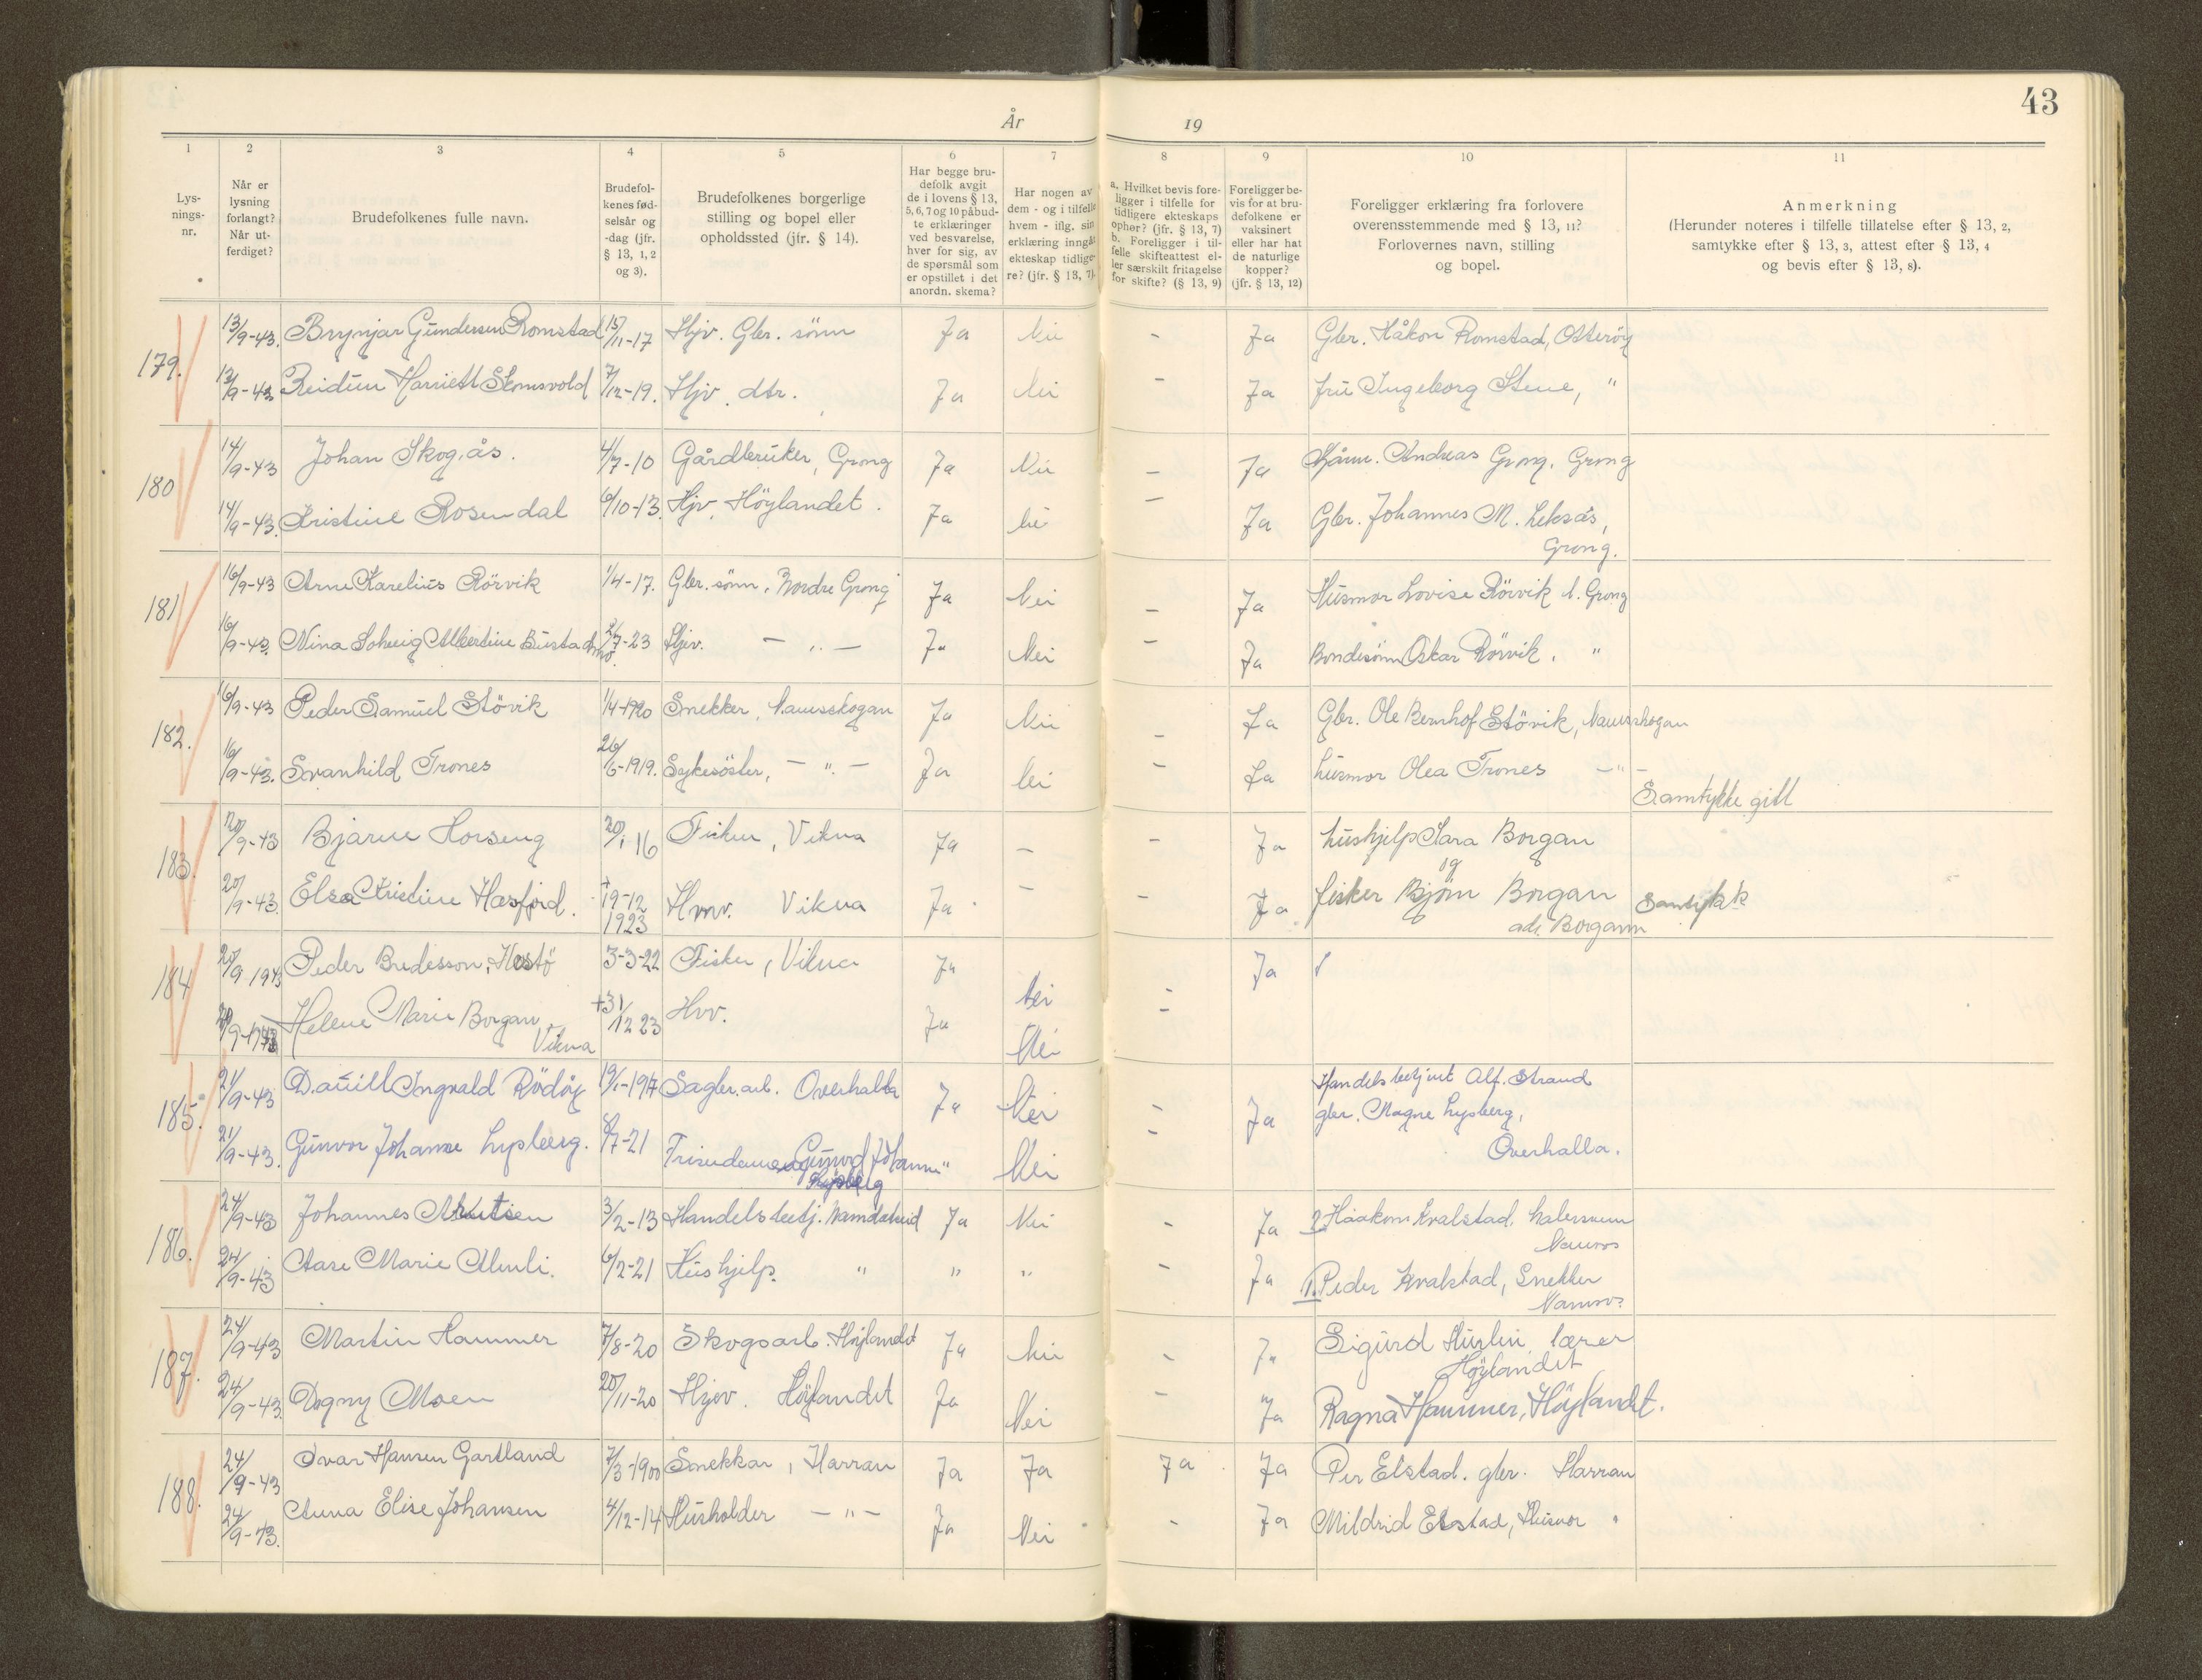 43
År 19
1 2 3 4 5 6 7 8 9 10 11
Lysnings-nr.
Når er lysning forlangt? Når utferdiget?
Brudefolkenes fulle navn.
Brudefolkenes fødselsår og -dag (jfr. § 13, 1, 2 og 3).
Brudefolkenes borgerlige stilling og bopel eller opholdssted (jfr. § 14).
Har begge brudefolk avgit de i lovens § 13, 5, 6, 7 og 10 påbudte erklæringer ved besvarelse, hver for sig, av de spørsmål som er opstillet i det anordn. skema?
Har nogen av dem - og i tilfelle hvem - iflg. sin erklæring inngått ekteskap tidligere? (jfr. § 13, 7)
a. Hvilket bevis foreligger i tilfelle for tidligere ekteskaps ophør? (jfr. § 13, 7) b. Foreligger i tilfelle skifteattest eller særskilt fritagelse for skifte? (§ 13, 9)
Foreligger bevis for at brudefolkene er vaksinert eller har hat de naturlige kopper? (jfr. § 13, 12)
Foreligger erklæring fra forlovere overensstemmende med § 13, 11? Forlovernes navn, stilling og bopel.
Anmerkning (Herunder noteres i tilfelle tillatelse efter § 13, 2, samtykke efter § 13, 3, attest efter § 13, 4 og bevis efter § 13, 8).
179. 13/9-43. Brynjar Gundersen Romstad 15/11-17 Hjv. Gbr. sönn Ja Nei - Ja Gbr. Håkon Romstad, Otteröy
13/9-43 Reidun Harriett Skomsvold 7/12-19. Hjv. dtr. Ja Nei - Ja fru Ingeborg Stene, "
180 14/9-43 Johan Skogås. 4/7-10 Gårdbruker, Grong Ja Nei - Ja Andreas Grong, Grong
14/9-43. Kristine Rosendal 6/10-13. Hjv. Höylandet. Ja Nei - Ja Gbr. Johannes M. Leksås,
Grong.
181 16/9-43 Arne Karelius Rörvik 1/4-17. Gbr. sönn, Nordre Grong Ja Nei - Ja Husmor Lovise Rörvik N. Grong
16/9-43. Nina Solveig Albertine Bustadmo. 2/7-23 Hjv. - " - Ja Nei - Ja Bondesönn Oskar Rörvik. "
182. 16/9-43 Peder Samuel Stövik 1/4-1920 Snekker, Namsskogan Ja Nei - Ja Gbr. Ole Bernhof Stövik, Namsskogan
16/9-43. Svanhild Trones 26/6-1919. Sykesöster, - " - Ja Nei - Ja husmor Olea Trones - " -
Samtykke gitt
183. 20/9-43 Bjarne Horseng 20/1 16 Fisker, Vikna Ja - - Ja hushjelp Sara Borgan
og
20/9-43. Elsa Kristine Hasfjord. + 19-12 1923 Hmv. Vikna Ja - - Ja fisker Björn Borgan Samtykk
adr. Borgann
184 20/9 1943 Peder Bredesson, Hostö 3-3-22 Fisker, Vikna Ja Nei - Ja
20/9-1943 Helene Marie Borgan +31/12 23 Hvv. Ja Nei -
Vikna
185. 21/9-43 Dauill Ingvald Rödöy 19/1-1917 Sagbr.arb. Overhalla Ja Nei - Ja Handelsbetjent Alf. Strand
gbr. Magne Lysberg,
21/9-43. Gunvor Johanne Lysberg. 8/7-21 Frisudame Gunvor Johanne " Nei - Overhalla.
Lysberg
186. 24/9-43 Johannes Arntsen 3/2-13 Handelsbetj. Namdalseid Ja Nei - Ja 2 Haakon Kvalstad,
Namsos
24/9-43 Aase Marie Almli. 6/2-21 Hushjelp. " " " - Ja 1. Peder Kvalstad, Snekker
Namsos
187. 24/9-43 Martin Hammer 7/8-20 Skogsarb. Höylandet Ja Nei - Ja Sigurd lærer
Höylandet
24/9-43. Dagny Moen 20/11-20 Hjv. Höylandet Ja Nei - Ja Ragna Hammer, Höylandet.
188. 24/9-43 Ivar Hansen Gartland 7/3-1900 Snekkar, Harran Ja Ja Ja Ja Per Elstad. gbr. Harran
24/9-43. Anna Elise Johansen 4/12-14 Husholder - " - Ja Nei - Ja Mildrid Elstad, Husmor "